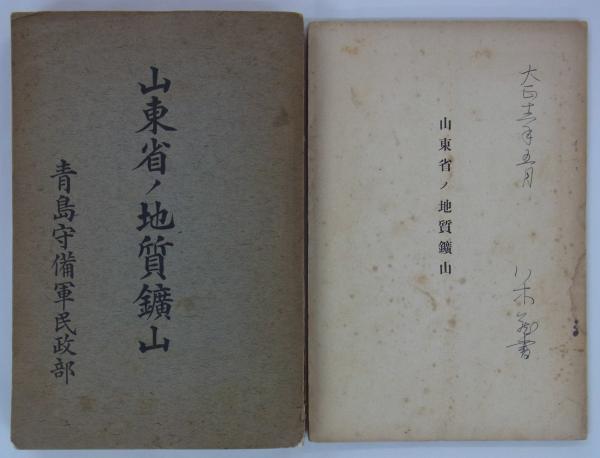 山東省ノ地質鑛山
青島守備軍民政部
大正十二年五月
山東省ノ地質鑛山
八木蔵書